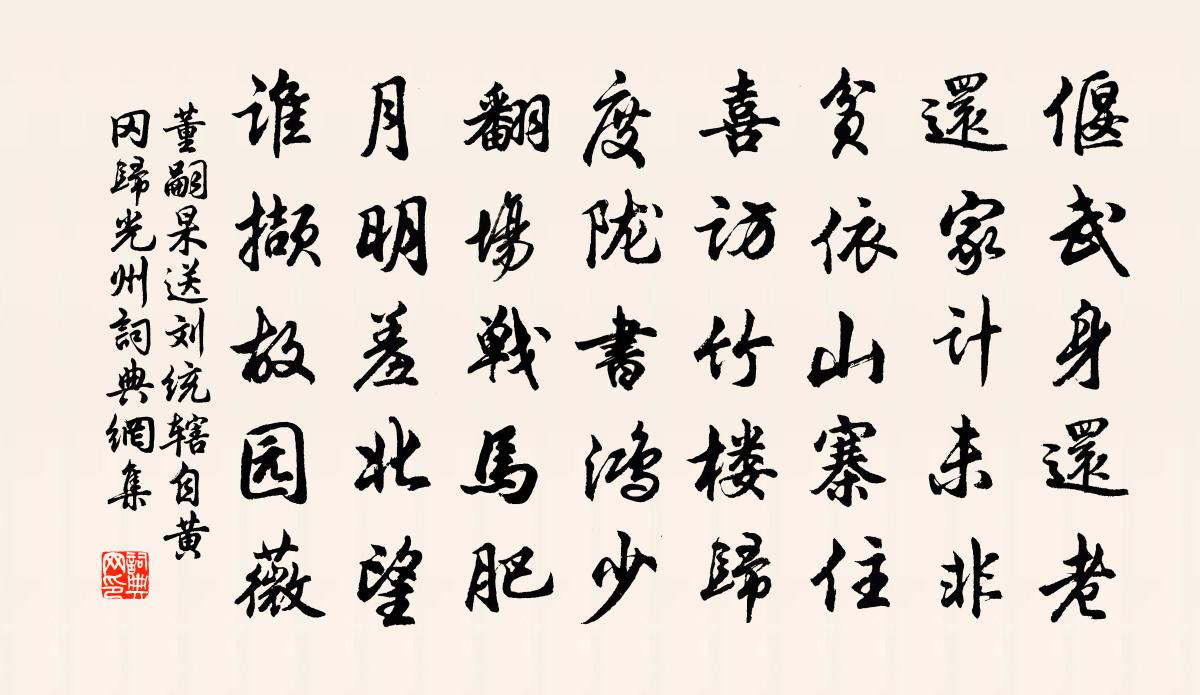 偃武身還老
還家計未非
貧依山寨住
喜訪竹楼歸
度陇書鸿少
翻場戰馬肥
月明羞北望
谁撷故园薇
董嗣杲送刘统辖自黄
冈歸光州詞典網集
詞典網印